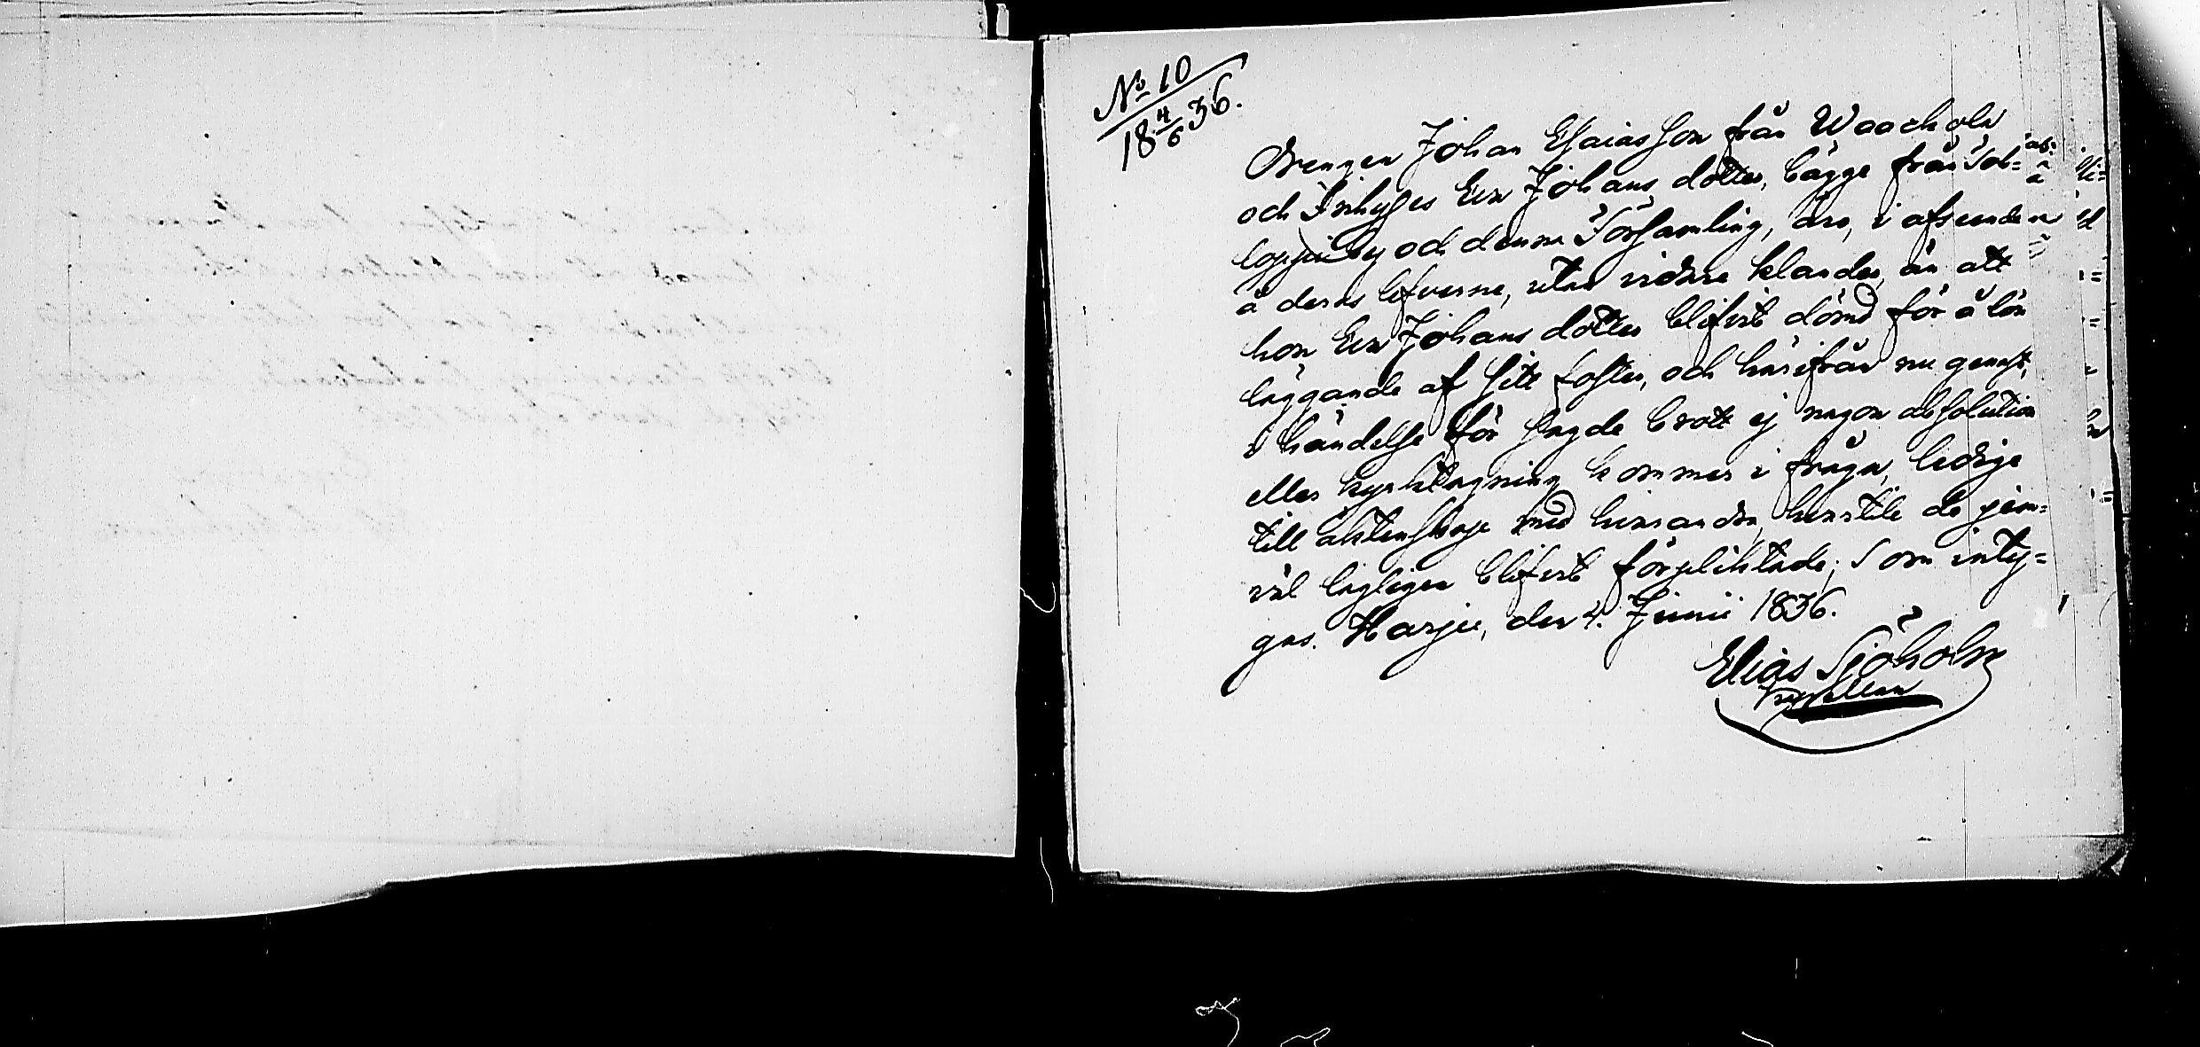 No 10
18 4/6 36.
Drengen Johan Esaiasson från Waachola
och Inhyses Eva Johans dotter, bägge från Sol-
by och denna Församling, äro, i afseende
å deras lefverne, utan vidare klander, än att
hon Eva Johans dotter blifvit dömd för å lön
läggande af sitt foster, och härifrån nu genast,
i händelse för sagde brott ej någon absolution
eller kyrktagning kommer i fråga, ledige
till äktenskap med hvarandra, hvartill de jem-
väl lagligen blifvit förpliktade; Som inty-
gas. Harju, den 4. Junii 1836.
Elias Sjöholm
Capellan